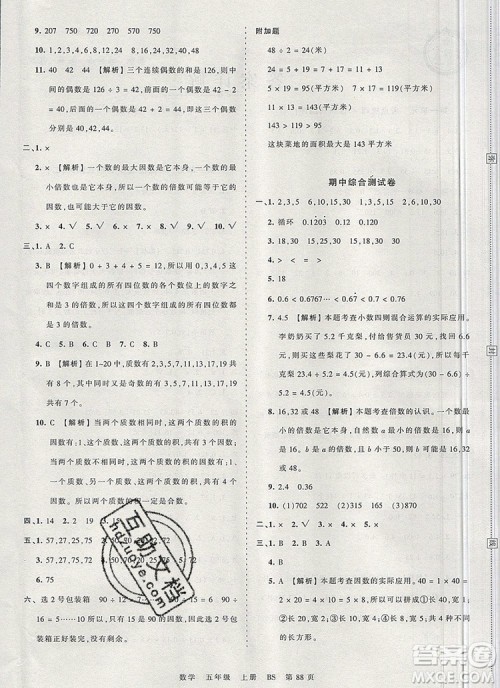 9. 207 750 720 207 750 720
10. 1,2,3,5,7,9
11. 40 42 44 【解析】三个连续偶数的和是126,则中
间的一个偶数是126÷3=42,所以前面的一个
偶数是42-2=40,后面的一个偶数是42+2=
44,这三个偶数分别是40,42,44。
二、1. ×
2. × 【解析】一个数的最大因数是它本身,一个数
的最小倍数也是它本身,一个数的最大因数和它
的最小倍数相等,所以一个数的倍数不一定大于
它的因数。
3. × 4. √ 5. √ 6. √
三、1. A 2. C
3. B 【解析】0+3+4+5=12,12是3的倍数,则
这四个数字组成的所有四位数都是3的倍数,所
以用这四个数字组成的所有四位数都有因数3。
4. A 5. B 6. C 7. B 8. C
9. B 【解析】1~20中,质数有2,3,5,7,11,13,17,19
共有8个,其中加2也是质数的有3,5,11,17
共有4个。
10. C 【解析】当两个质数相同时,两个质数的积的
因数有3个;当两个质数不同时,两个质数的积的
因数有1,这两个质数,这两个质数的积,共有4个
因数。所以两个质数的积一定是合数。
四、1. 14 2. 19 3. 15
五、1. 57,27,75,25 2. 50,90 3. 57,27,75,90
4. 50,25,75,90 5. 57,27,75,25
6. 75
六、选2号包装箱 90÷12=
÷16=5……10,所以选
箱正好装完,没有剩余。
附加题
48÷2=24(米)
24=5+19=7+17=11+13
5×19=95(平方米)
7×17=119(平方米)
11×13=143(平方米)
这块菜地的面积最大是143平方米
期中综合测试卷
一、1. 1,2,3,6,9,18 15,30,45
2. 循环 0.1203 0.120
3. 16,18,30 15,30
4. 10 2
5. 18 2
6. 0.6<0.6767…<0.67<2.06
7. 4.5 【解析】本题考查小数四则混合运算的实际应用。
李奶奶买了5.2千克梨,付给售货员50
元,找回26.6元,可知李奶奶花了50-26.6=
23.4(元),根据单价=总价÷数量可知,每千克梨
23.4÷5.2=4.5(元),列综合算式为(50-26.6)
÷5.2。
8. 16,32或48 【解析】本题考查倍数的认识。一个
自然数比50小,它既是16的倍数,又有因数
4,16的倍数且小于50的数有16,32,48,都是4
的倍数,因此这个自然数可能是16,32或48。
9. 2.4 0.36
10. (1)702 (2)102 (3)522 (4)120
二、1. × 2. × 3. √ 4. × 5. √
三、1. B 2. A 3. B 4. C
5. A 【解析】本题考查因数的实际应用。